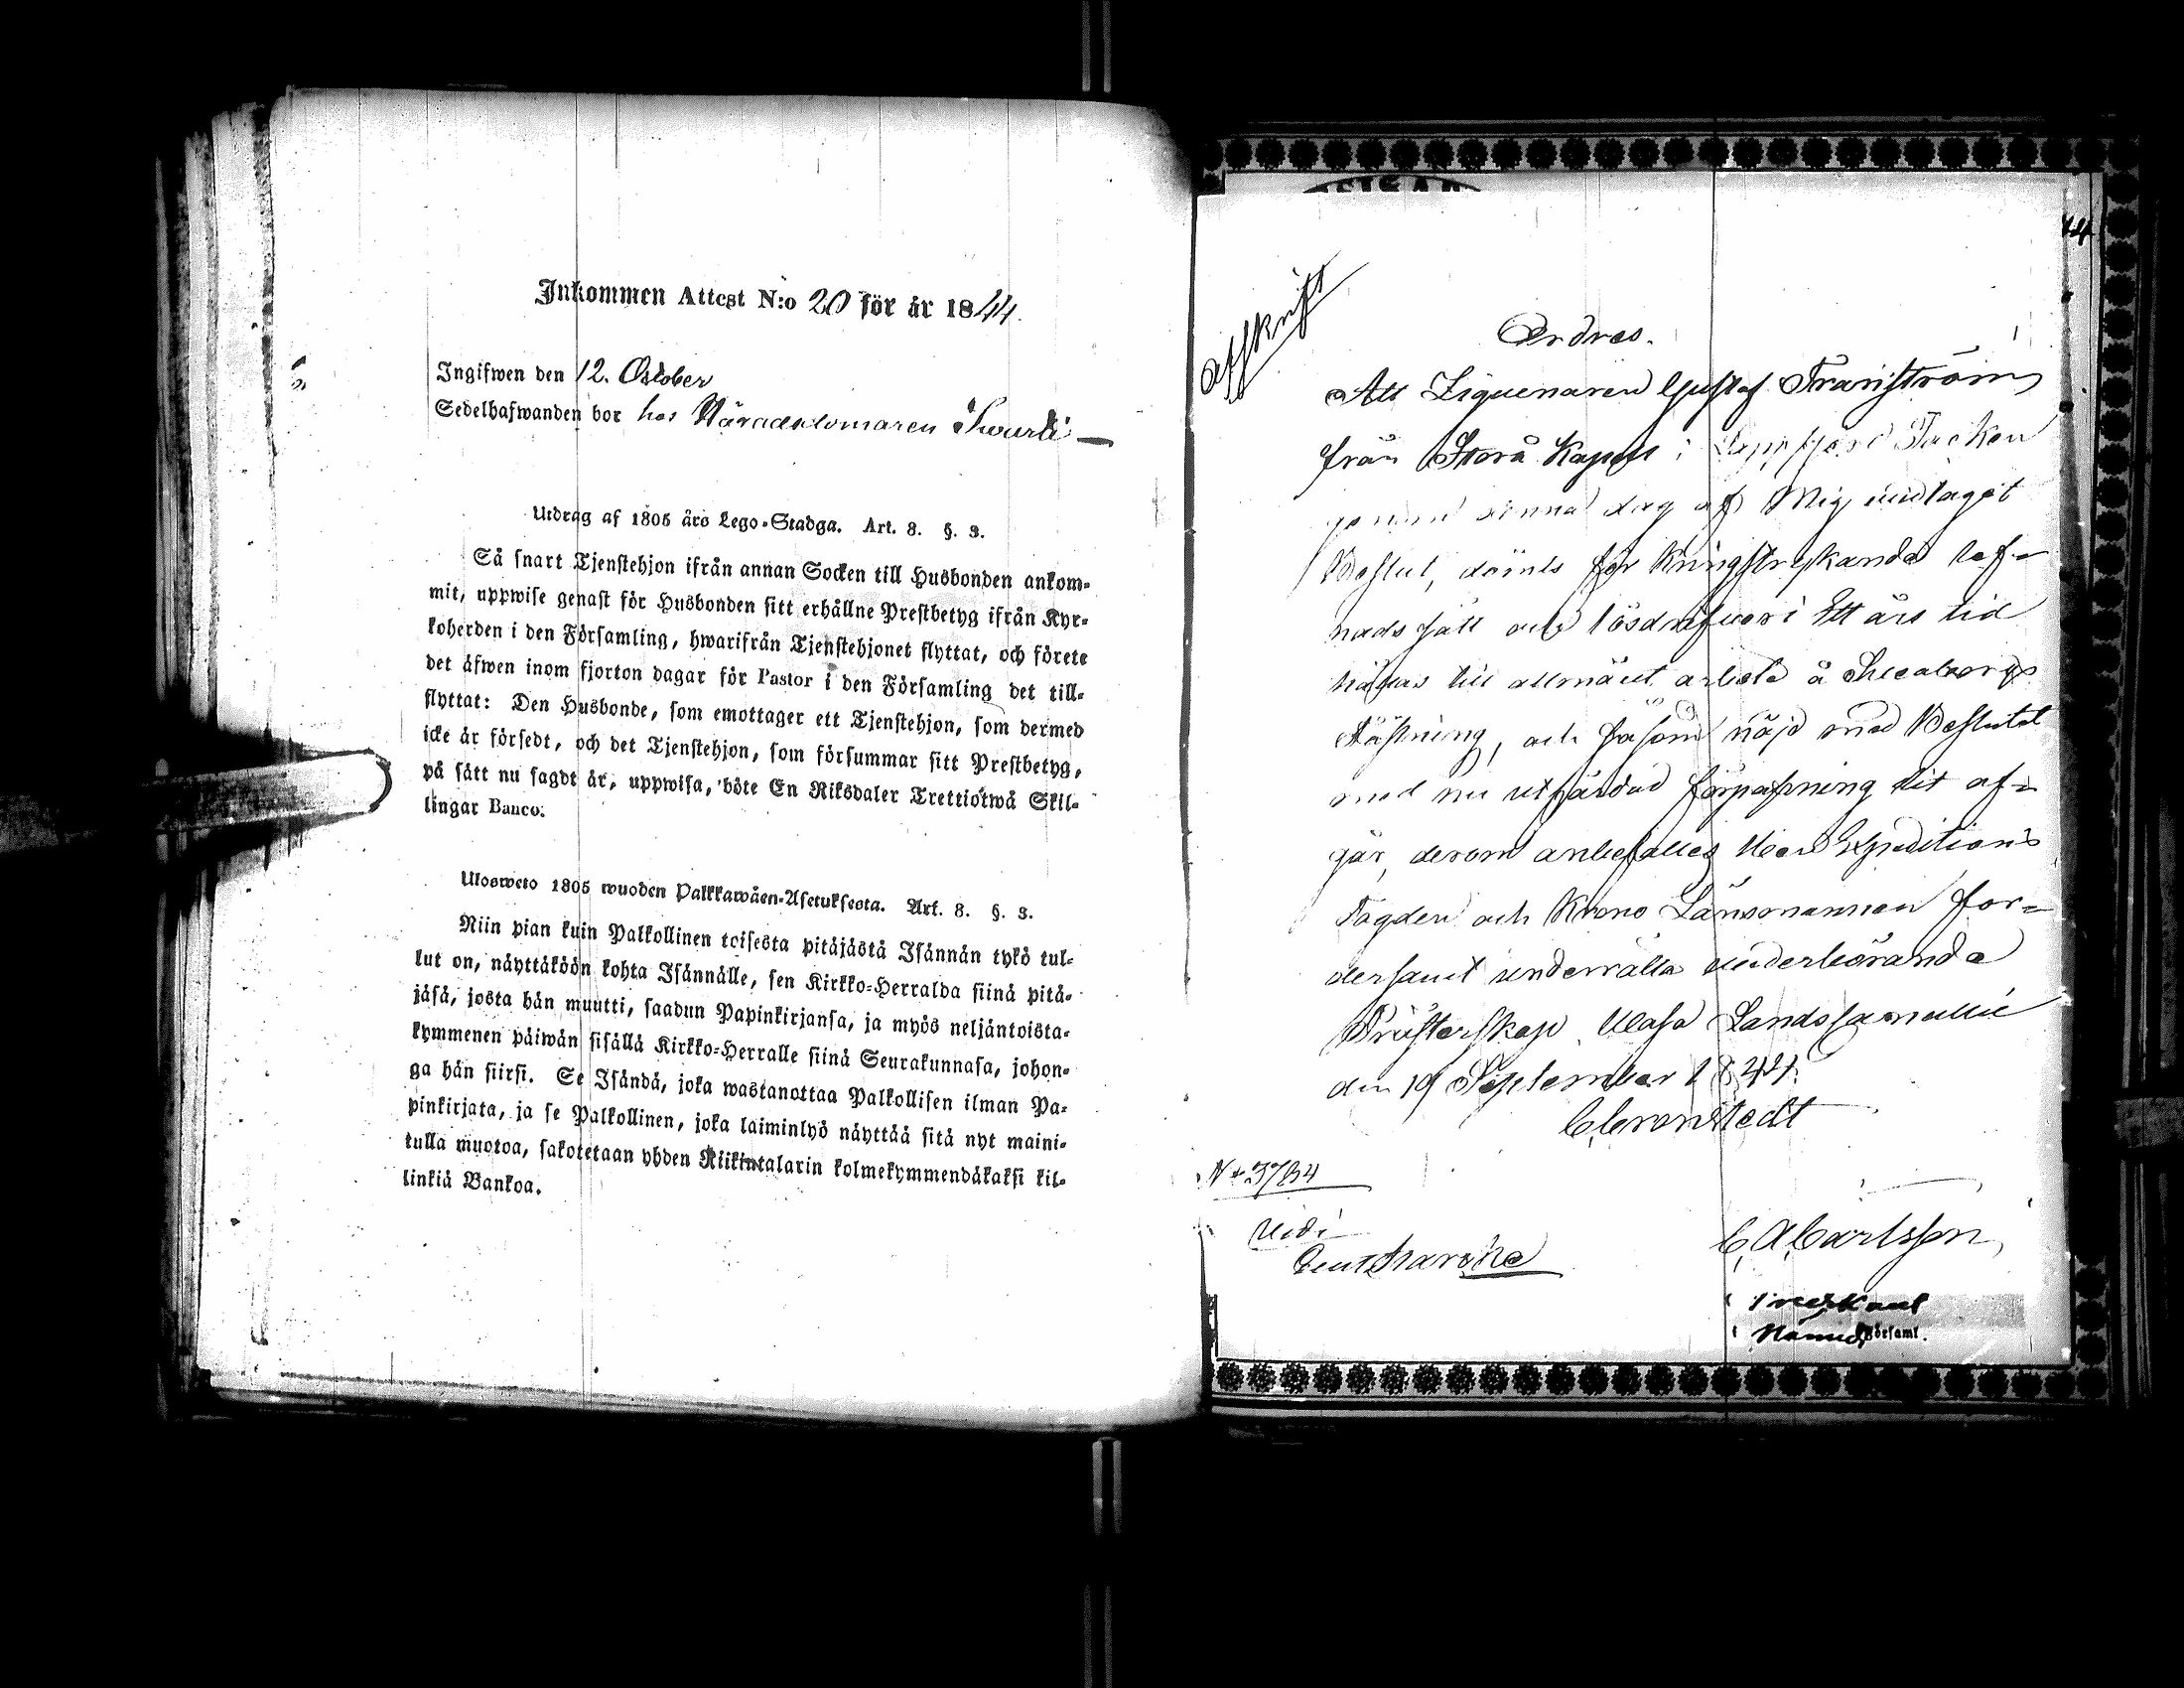 Inkommen Attest N:o 20 för år 1844.
Ingifwen den 12. October
Sedelhafwanden bor hos Häradsdomaren
Utdrag af 1805 års Lego-Stadga. Art. 8. §. 3.
Så snart Tjenstehjon ifrån annan Socken till Husbonden ankom-
mit, uppwise genast för Husbonden sitt erhållne Prestbetyg ifrån Kyr-
koherden i den Församling, hwarifrån Tjenstehjonet flyttat, och förete
det äfwen inom fjorton dagar för Pastor i den Församling det till-
flyttat: Den Husbonde, som emottager ett Tjenstehjon, som dermed
icke är försedt, och det Tjenstehjon, som försummar sitt Prestbetyg,
på sätt nu sagdt är, uppwisa, böte En Riksdaler Trettiotwå Skil-
lingar Banco.
Ulosweto 1805 wuoden Palkkawäen-Asetuksesta. Art. 8. §. 3.
Niin pian kuin Palkollinen toisesta pitäjästä Isännän tykö tul-
lut on, näyttäköön kohta Isännälle, sen Kirkko-Herralda siinä pitä-
jäsä, josta hän muutti, saadun Papinkirjansa, ja myös neljäntoista-
kymmenen päiwän sisällä Kirkko-Herralle siinä Seurakunnasa, johon-
ga hän siirsi. Se Isändä, joka wastanottaa Palkollisen ilman Pa-
pinkirjata, ja se Palkollinen, joka laiminlyö näyttää sitä nyt maini-
tulla muotoa, sakotetaan yhden Riikintalarin kolmekymmendäkaksi kil-
linkiä Bankoa.
44
Afskrift
Ordres.
Att Ziguenaren Gustaf Franström
från Storå Kapell i Lappfjerd Socken
genom denna dag af Mig meddelagt
Beslut, dömts för kringstrykande lef-
nads sätt och lösdrifveri Ett års tid
hållas till allmänt arbete å Sveaborgs
Fästning, och såsom nöjd med Beslutet
med nu utfärdad förpassning dit af-
går, derom anbefalles Herr Expeditions
Fogden och Krono Länsmannen för-
dersamt underrätta vederbörande
Prästerskap. Wasa Landscancellie
den 19 September 1844.
C. Cronstedt
N:o 3784
C A Carlsson,
Vidi
Församl.